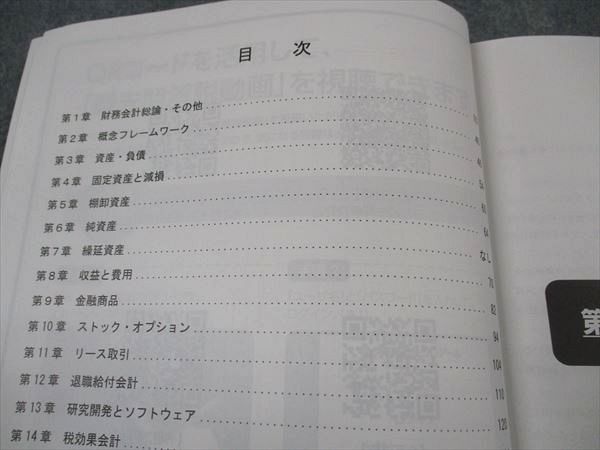 目 次
第1章 財務会計総論・その他
第2章 概念フレームワーク
第3章 資産・負債 46
第4章 固定資産と減損 54
第5章 棚卸資産 60
第6章 純資産 64
第7章 繰延資産 なし
第8章 収益と費用 70
第9章 金融商品 82
第10章 ストック・オプション 94
第11章 リース取引 104
第12章 退職給付会計 110
第13章 研究開発とソフトウェア 120
第14章 税効果会計
第